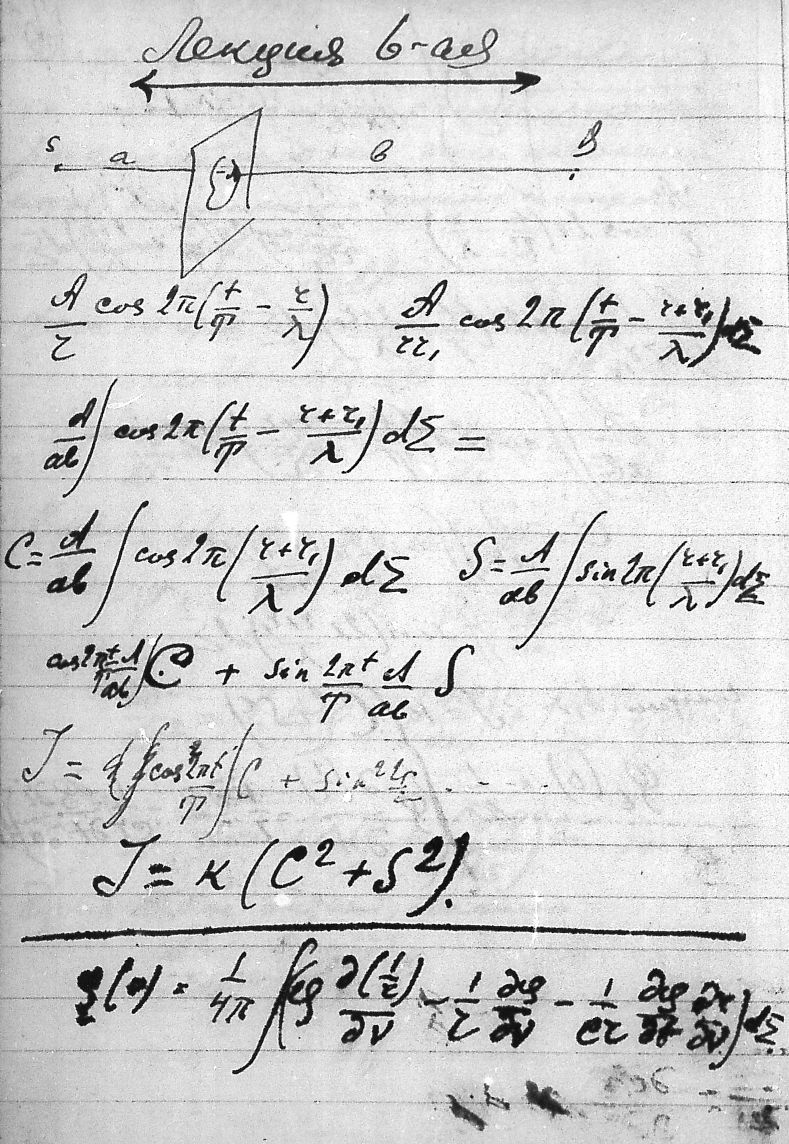 Лекция 6-ая
s a b B
A/r cos 2π(t/T − r/λ) A/rr₁ cos 2π(t/T − (r+r₁)/λ) dΣ
A/ab ∫ cos 2π(t/T − (r+r₁)/λ) dΣ =
C = A/ab ∫ cos 2π((r+r₁)/λ) dΣ S = A/ab ∫ sin 2π((r+r₁)/λ) dΣ
cos 2πt/T A/ab C + sin 2πt/T A/ab S
J = cos 2πt/T C + sin²
J = к (C² + S²).
1/4π ∫(φ ∂(1/r)/∂ν − 1/r ∂φ/∂ν − 1/cr ∂φ/∂t ∂r/∂ν) dΣ